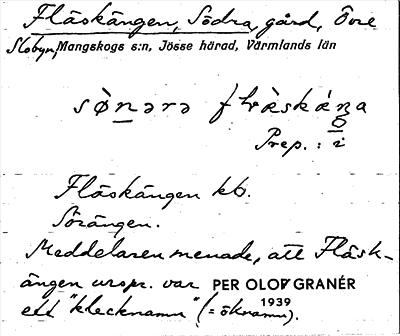 Fläskängen, Södra, gård, Övre
Slobyn, Mangskogs s:n, Jösse härad, Värmlands län
sø̀nərə flàskáŋa
Prep.: i
Fläskängen kb.
Sörängen.
Meddelaren menade, att Fläsk-
ängen urspr. var PER OLOF GRANÉR
ett "klecknamn" (= öknamn). 1939